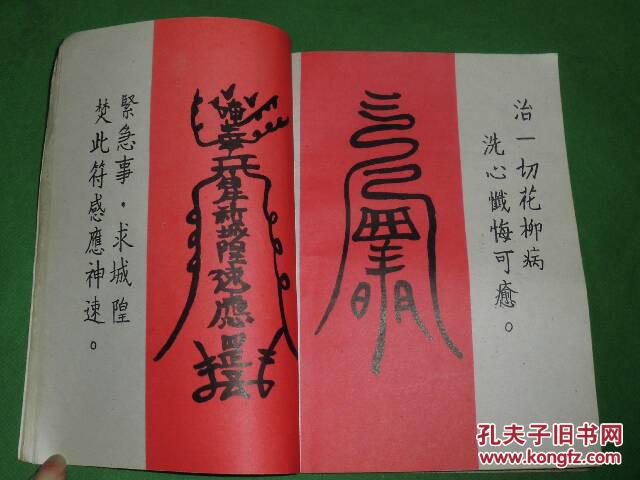 治一切花柳病
洗心懺悔可癒。
速應
緊急事．求城隍
焚此符感應神速。
孔夫子旧书网
www.kongfz.com